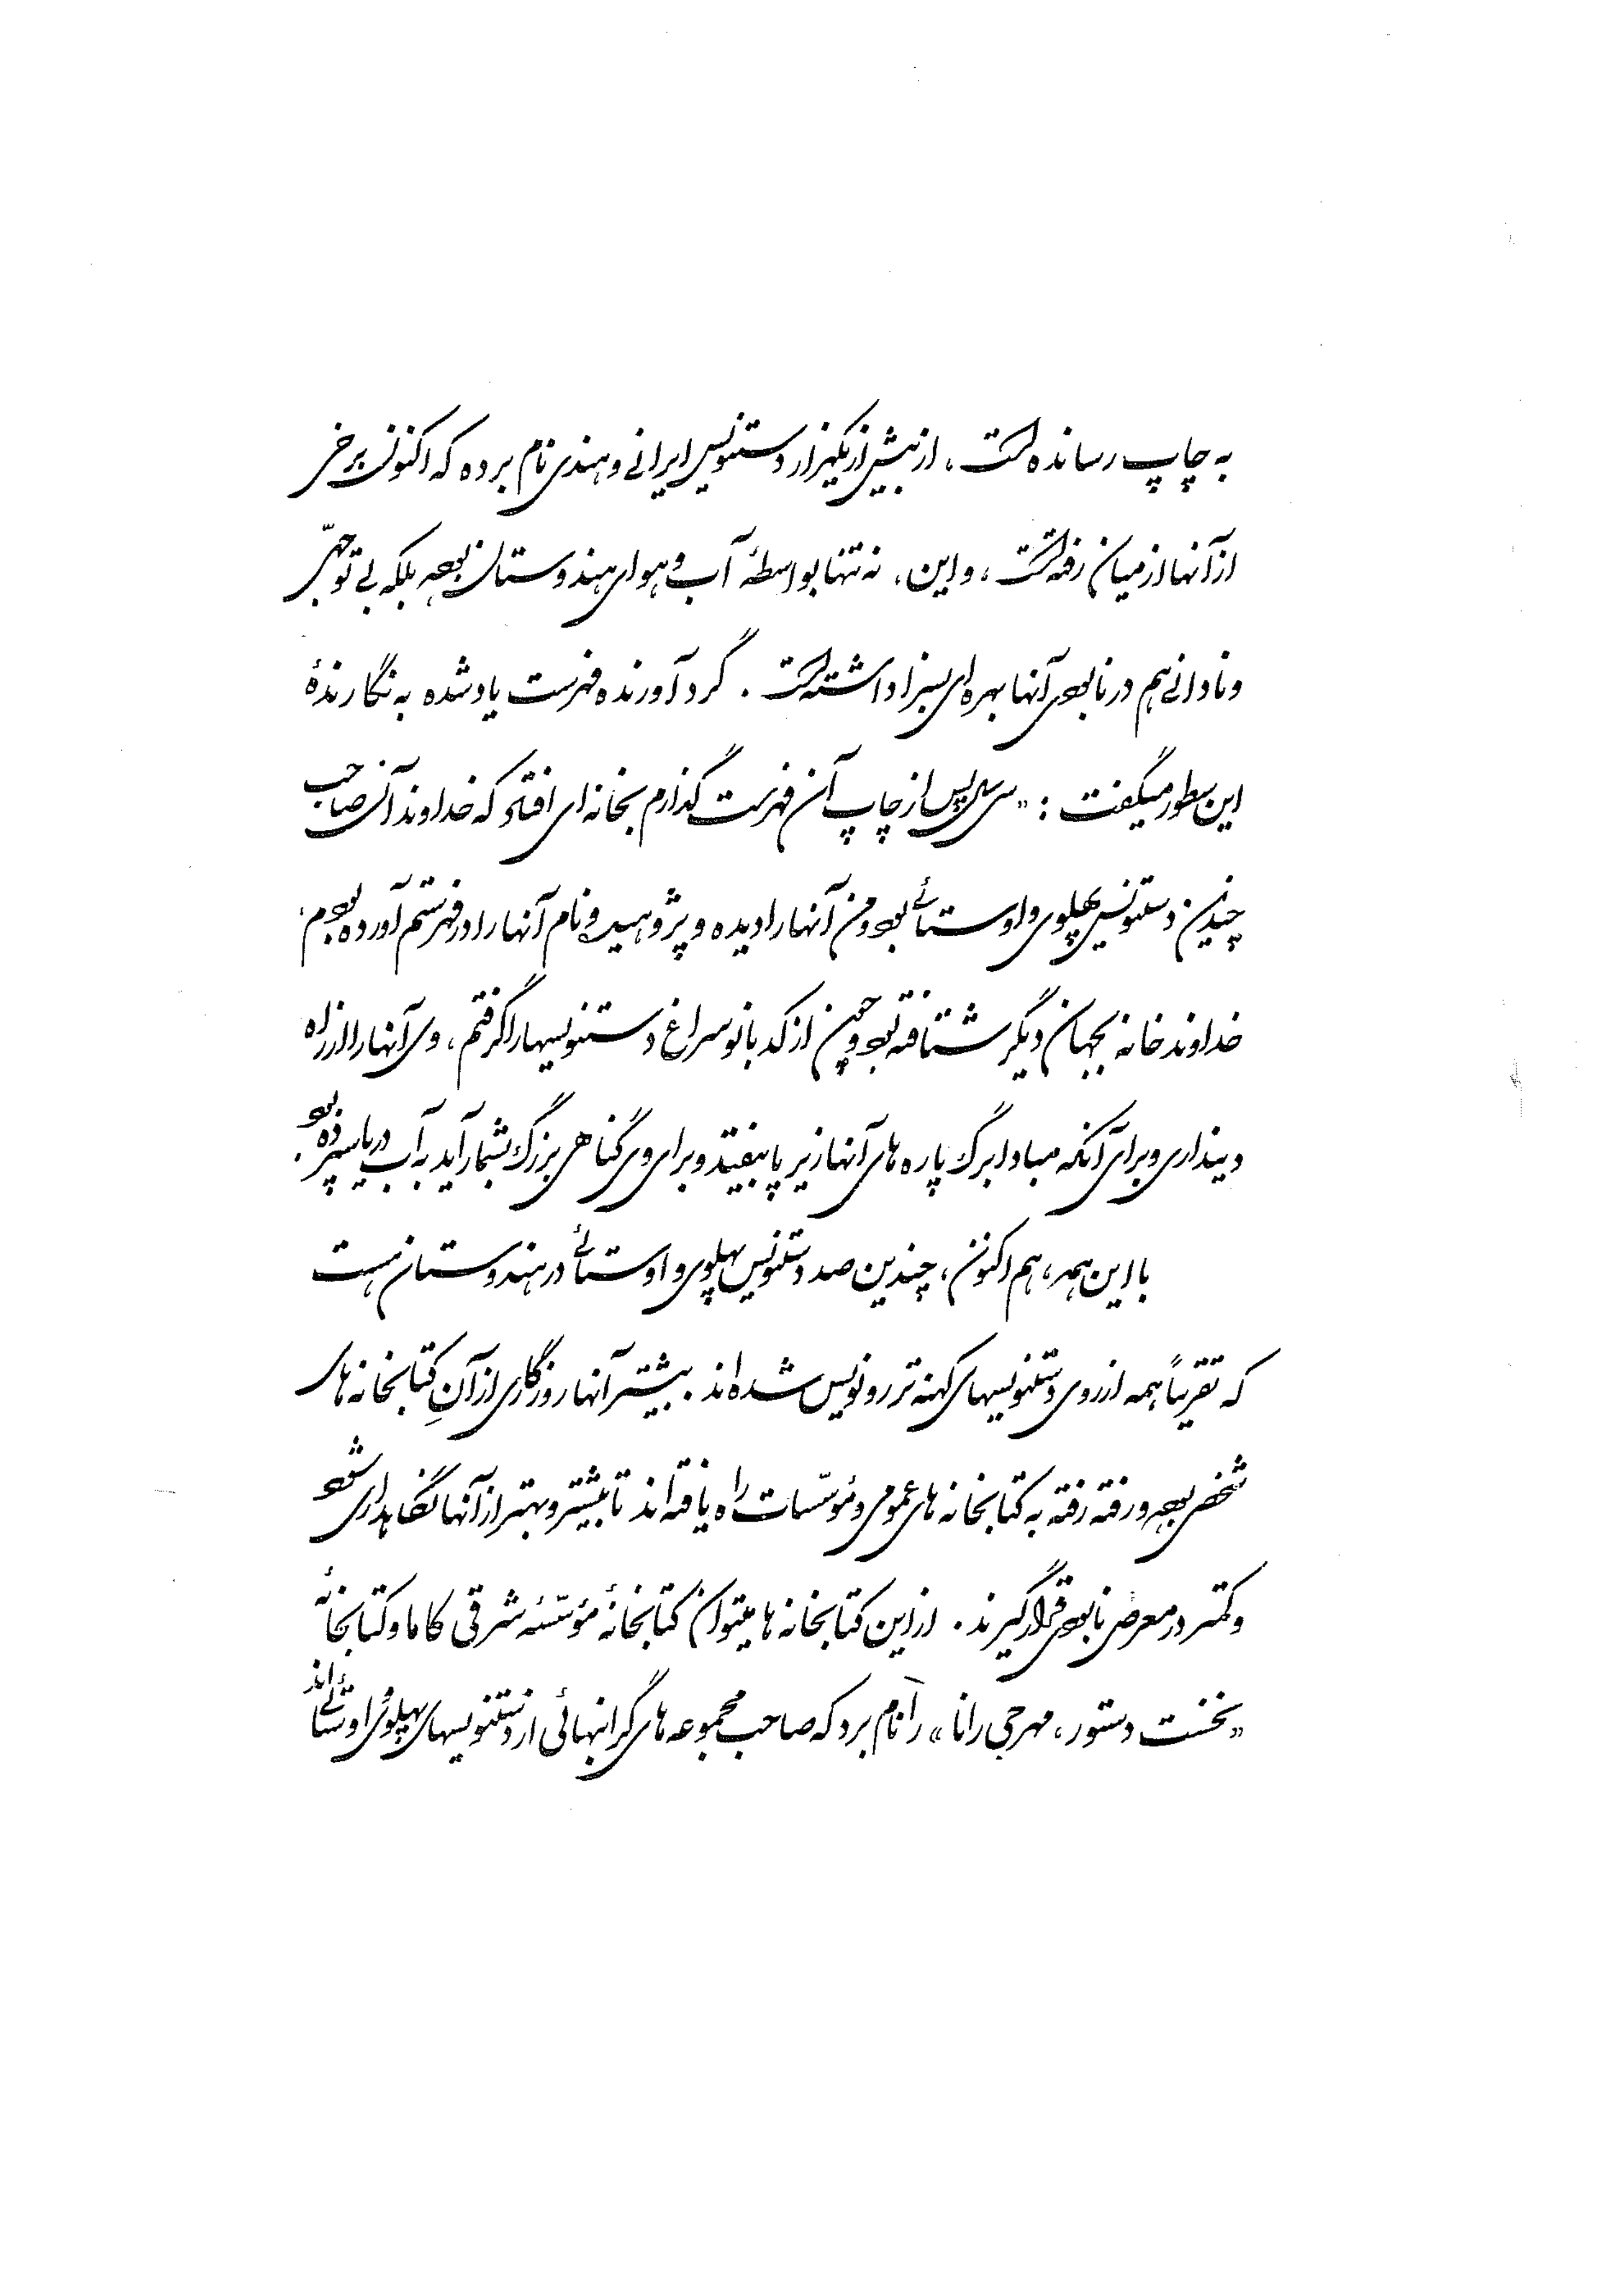 به چاپ رسانده است، از بیش از یکهزار دستنویس ایرانی و هندی نام برده که اکنون برخی
از آنها از میان رفته است، و این، نه تنها بواسطهٔ آب و هوای هندوستان بوده بلکه بی توجّهی
و نادانی هم در نابودی آنها بهره‌ای بسزا داشته است. گردآورنده فهرست یاد شده به نگارندهٔ
این سطور میگفت: «سی سال پس از چاپ آن فهرست گذارم بخانه‌ای افتاد که خداوند آن صاحب
چندین دستنویس پهلوی و اوستائی بود و من آنها را دیده و پژوهیده و نام آنها را در فهرستم آورده بودم،
خداوند خانه بجهان دیگر شتافته بود و چون از کدبانو سراغ دستنویسها را گرفتم، وی آنها را از راه
دینداری و برای آنکه مبادا برگ پاره‌های آنها زیر پا بیفتد و برای وی گناهی بزرگ بشمار آید به آب دریا سپرده بود.
با این همه، هم اکنون، چندین صد دستنویس پهلوی و اوستائی در هندوستان هست
که تقریباً همه از روی دستنویسهای کهنه‌تر رونویس شده‌اند. بیشتر آنها روزگاری از آنِ کتابخانه‌های
شخصی بوده و رفته رفته به کتابخانه‌های عمومی و مؤسّسات راه یافته‌اند تا بیشتر و بهتر از آنها نگاهداری شود
و کمتر در معرض نابودی قرار گیرند. از این کتابخانه‌ها میتوان کتابخانهٔ مؤسّسهٔ شرقی کاما و کتابخانهٔ
«نخست دستور، مهرجی رانا» را نام برد که صاحب مجموعه‌های گرانبهائی از دستنویسهای پهلوی و اوستائی‌اند